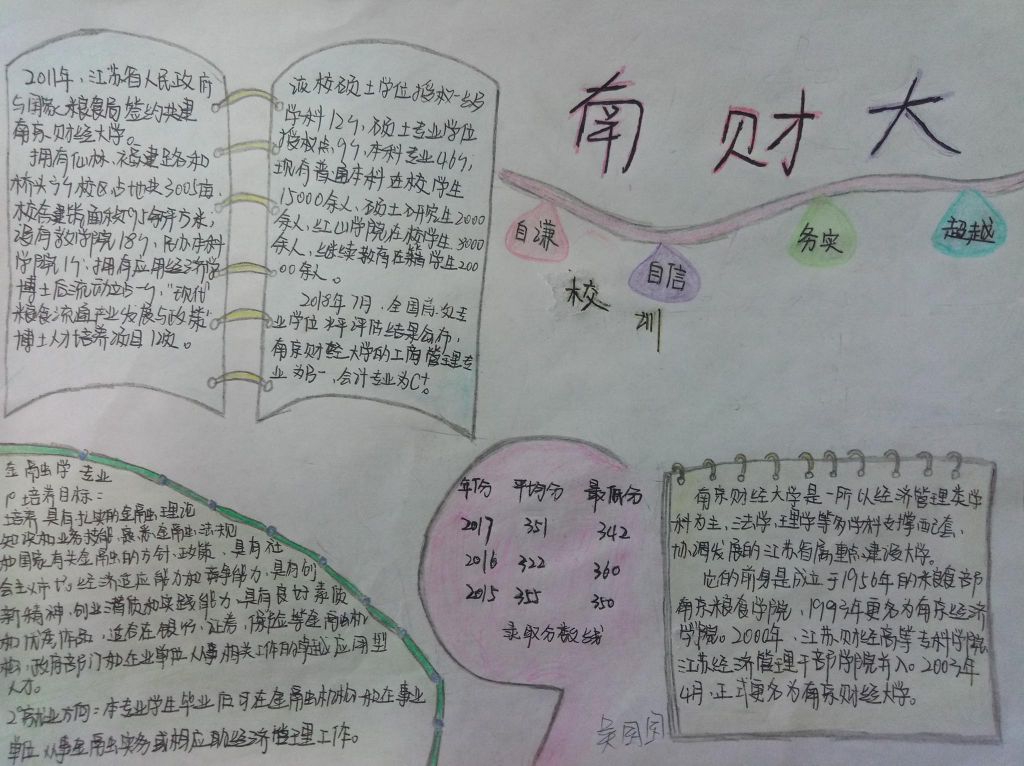 2011年,江苏省人民政府
与国家粮食局签约共建
南京财经大学。
拥有仙林、福建路和
桥头3个校区,占地共3005亩,
校舍建筑面积95万平方米,
设有教学院18个,民办本科
学院1个,拥有应用经济学
博士后流动站一个,"现代
粮食流通产业发展与政策"
博士人才培养项目12项。
该校硕士学位授权一级
学科12个,硕士专业学位
授权点9个,本科专业46个,
现有普通本科在校学生
15000余人、硕士研究生2000
余人,红山学院在校学生8000
余人,继续教育在籍学生200
00余人。
2018年7月,全国首次专
业学位水平评估结果公布,
南京财经大学的工商管理专
业为B-,会计专业为C+。
南财大
自谦
自信
务实
超越
校
训
金融学专业
1°培养目标:
培养具有扎实的金融理论
知识和业务技能,熟悉金融法规
和国家有关金融的方针、政策,具有社
会主义市场经济适应能力和竞争能力,具有创
新精神、创业潜质和实践能力,具有良好素质
和优秀作品,适合在银行、证券、保险等金融机
构、政府部门和企业单位从事相关工作的卓越应用型
人才。
2°就业方向:本专业学生毕业后可在金融机构和在事业
单位从事金融实务或相应职经济管理工作。
年份 平均分 最低分
2017 351 342
2016 322 360
2015 355 350
录取分数线
南京财经大学是一所以经济管理类学
科为主,法学、理学等多学科支撑配套,
协调发展的江苏省属重点建设大学。
它的前身是成立于1956年的粮食部
南京粮食学院,1993年更名为南京经济
学院。2000年,江苏财经高等专科学院,
江苏经济管理干部学院并入。2003年
4月,正式更名为南京财经大学。